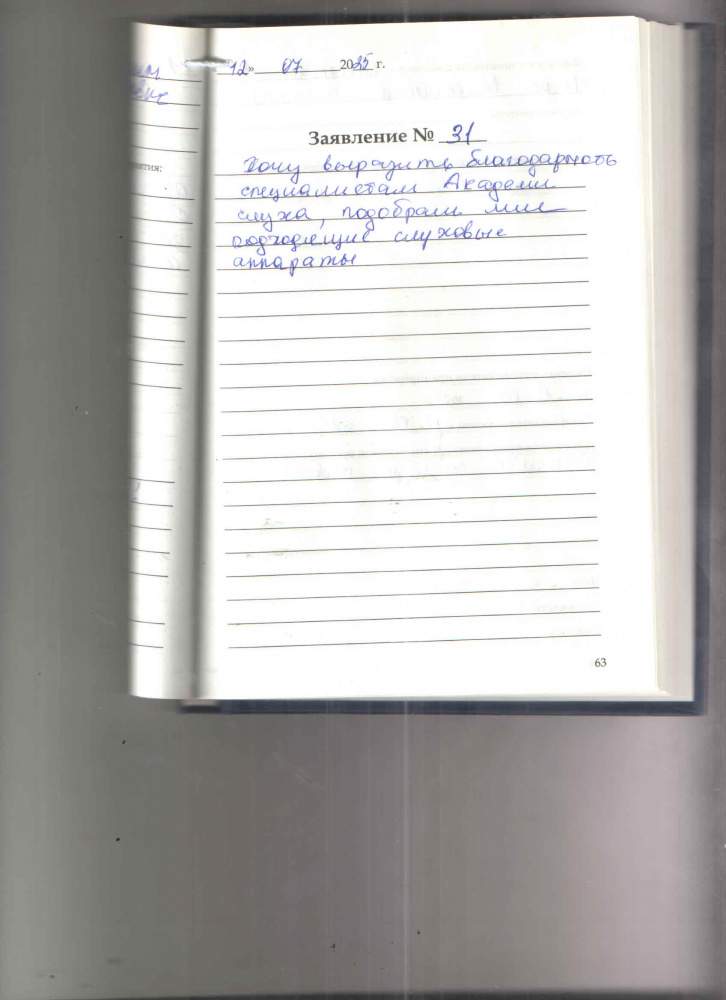 «12» 07 2025 г.
Заявление № 31
Хочу выразить благодарность
специалистам Академии
слуха, подобрали мне
подходящие слуховые
аппараты
63